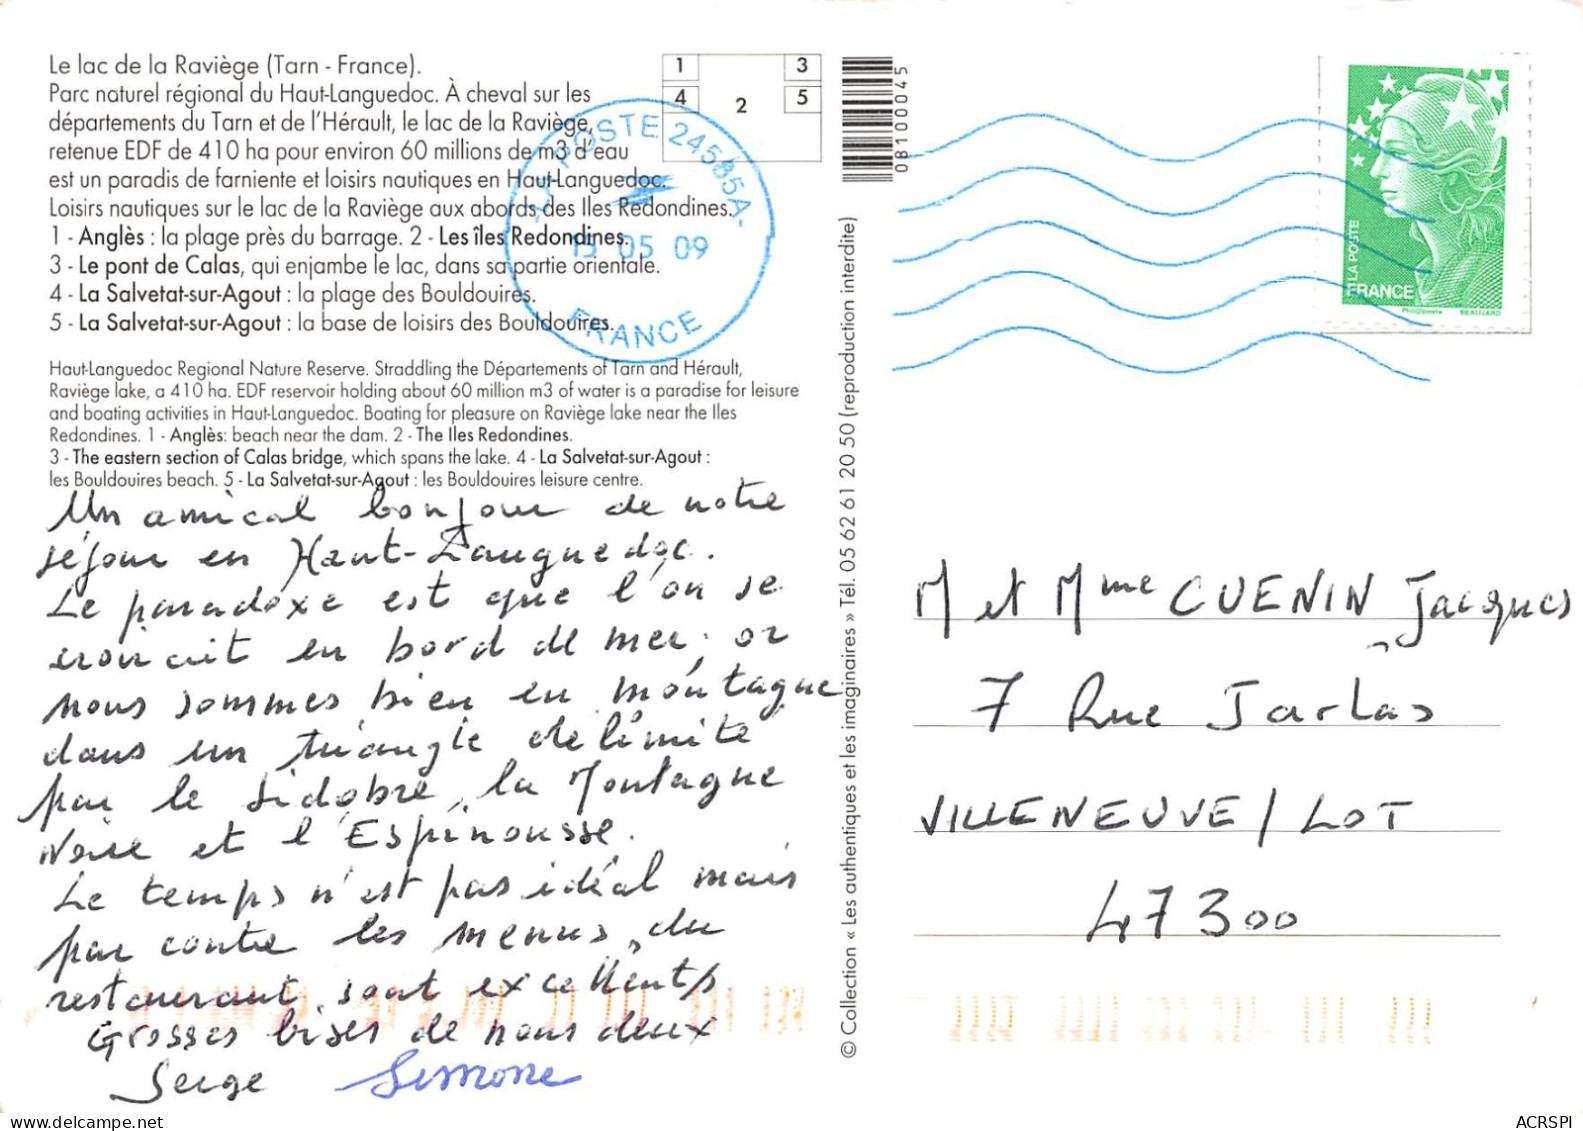 Le lac de la Raviège (Tarn - France).
Parc naturel régional du Haut-Languedoc. À cheval sur les
départements du Tarn et de l'Hérault, le lac de la Raviège,
retenue EDF de 410 ha pour environ 60 millions de m3 d'eau
est un paradis de farniente et loisirs nautiques en Haut-Languedoc.
Loisirs nautiques sur le lac de la Raviège aux abords des Iles Redondines.
1 - Anglès : la plage près du barrage. 2 - Les îles Redondines.
3 - Le pont de Calas, qui enjambe le lac, dans sa partie orientale.
4 - La Salvetat-sur-Agout : la plage des Bouldouires.
5 - La Salvetat-sur-Agout : la base de loisirs des Bouldouires.
Haut-Languedoc Regional Nature Reserve. Straddling the Départements of Tarn and Hérault,
Raviège lake, a 410 ha. EDF reservoir holding about 60 million m3 of water is a paradise for leisure
and boating activities in Haut-Languedoc. Boating for pleasure on Raviège lake near the Iles
Redondines. 1 - Anglès: beach near the dam. 2 - The Iles Redondines.
3 - The eastern section of Calas bridge, which spans the lake. 4 - La Salvetat-sur-Agout :
les Bouldouires beach. 5 - La Salvetat-sur-Agout : les Bouldouires leisure centre.
1 3
4 2 5
LA POSTE 24585A
15 05 09
FRANCE
08100045
© Collection « Les authentiques et les imaginaires » Tél. 05 62 61 20 50 (reproduction interdite)
LA POSTE
FRANCE
Phil@poste BEAUJARD
Un amical bonjour de notre
séjour en Haut-Languedoc.
Le paradoxe est que l'on se
croirait en bord de mer; or
nous sommes bien en montagne
dans un triangle délimité
par le Sidobre, la Montagne
Noire et l'Espinousse.
Le temps n'est pas idéal mais
par contre les menus, du
restaurant, sont excellents
Grosses bises de nous deux
Serge Simone
M et Mme CUENIN Jacques
7 Rue Jarlas
VILLENEUVE / LOT
47300
ACRSPI